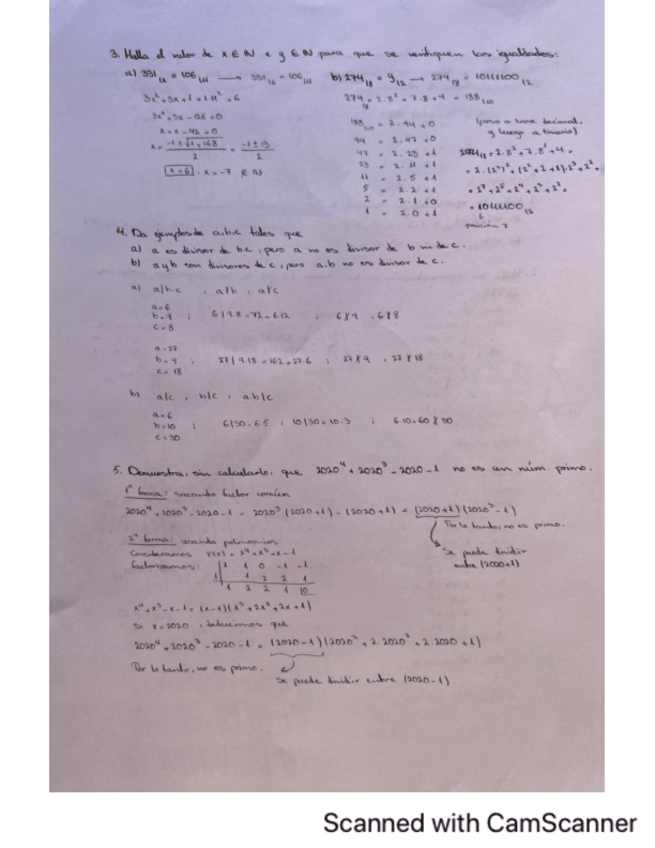 3. Halla el valor de x ∈ IN e y ∈ IN para que se verifiquen las igualdades:
a) 331(x = 106(11 → 331(x = 106(11
3x² + 3x + 1 = 1·11² + 6
3x² + 3x - 126 = 0
x² + x - 42 = 0
x = (-1 ± √(1+168))/2 = (-1 ± 13)/2
x = 6 , x = -7 ∉ IN
b) 274(8 = y(2 → 274(8 = 10111100(2
274(8 = 2·8² + 7·8 + 4 = 188(10
188(10 = 2·94 + 0
94 = 2·47 + 0
47 = 2·23 + 1
23 = 2·11 + 1
11 = 2·5 + 1
5 = 2·2 + 1
2 = 2·1 + 0
1 = 2·0 + 1
(paso a base decimal,
y luego a binario)
274(8 = 2·8² + 7·8¹ + 4 =
= 2·(2³)² + (2² + 2 + 1)·2³ + 2² =
= 2⁷ + 2⁵ + 2⁴ + 2³ + 2² =
= 10111100(2
posición 7
4. Da ejemplos de a, b, c tales que
a) a es divisor de b·c, pero a no es divisor de b ni de c.
b) a y b son divisores de c, pero a·b no es divisor de c.
a) a/b·c , a∤b , a∤c
a = 6
b = 9 ; 6/9·8 = 72 = 6·12 ; 6∤9 , 6∤8
c = 8
a = 27
b = 9 ; 27/9·18 = 162 = 27·6 ; 27∤9 , 27∤18
c = 18
b) a/c , b/c , ab∤c
a = 6
b = 10 ; 6/30 = 6·5 ; 10/30 = 10·3 ; 6·10 = 60∤30
c = 30
5. Demuestra, sin calcularlo, que 2020⁴ + 2020³ - 2020 - 1 no es un núm. primo.
1ª forma: sacando factor común
2020⁴ + 2020³ - 2020 - 1 = 2020³ (2020+1) - (2020+1) = (2020+1)(2020³-1)
Por lo tanto, no es primo.
Se puede dividir
entre (2020+1)
2ª forma: usando polinomios
Consideramos P(x) = x⁴ + x³ - x - 1
factorizamos:
1 1 0 -1 -1
1 1 2 2 1
1 2 2 1 |0
x⁴ + x³ - x - 1 = (x-1)(x³ + 2x² + 2x + 1)
Si x = 2020, deducimos que
2020⁴ + 2020³ - 2020 - 1 = (2020-1)(2020³ + 2·2020² + 2·2020 + 1)
Por lo tanto, no es primo.
Se puede dividir entre (2020-1)
Scanned with CamScanner